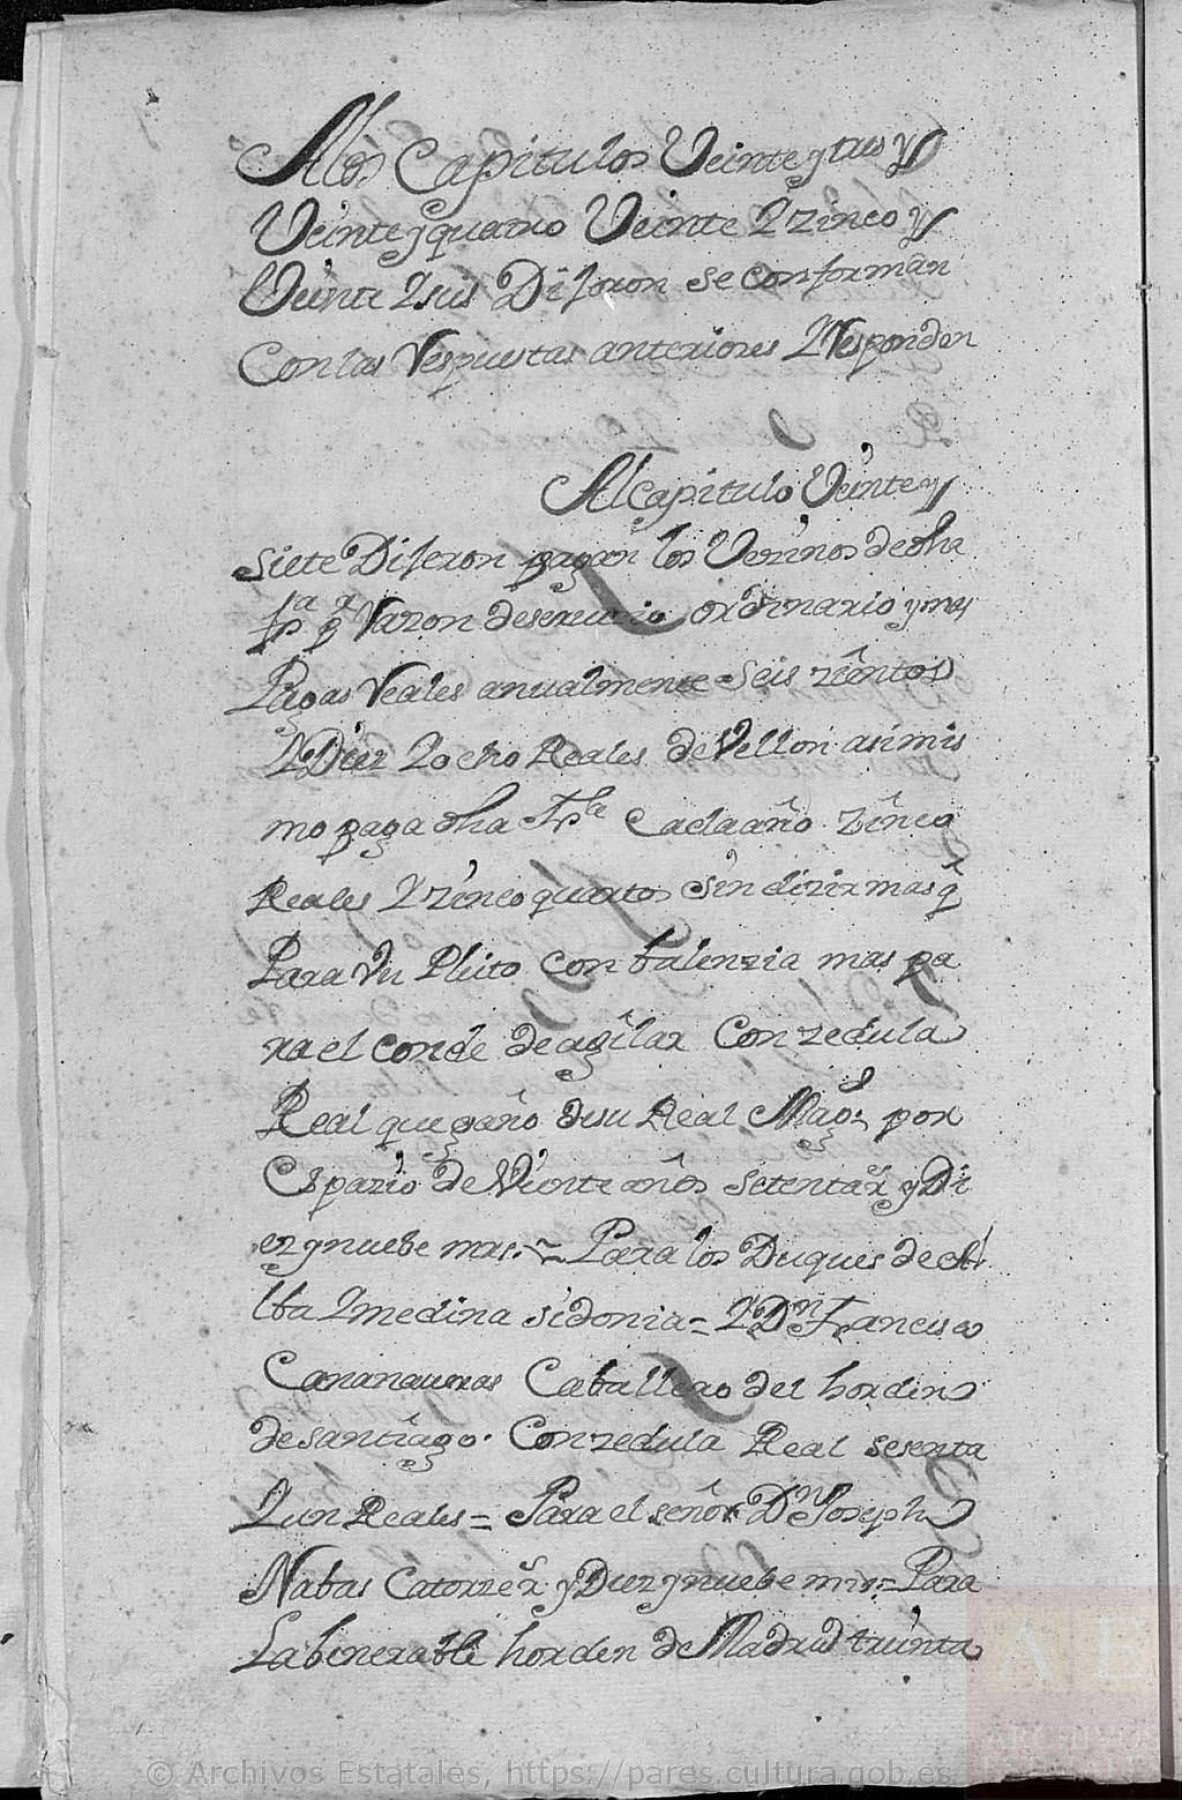 Alos Capitulos Veinte y tres y
Veinte y quatro Veinte Y zinco y
Veinte Y seis Dijeron se conforman
Con las Respuestas anteriores Y Responden
Al capitulo Veinte y
siete Dijeron pagan los Vezinos de dha
pª pr Razon de serviçio ordinario y mas
Pagas Reales anualmente Seis zientos
Y Diez Y ocho Reales de Vellon asimis
mo paga dha Cada año zinco
Reales Y zinco quartos sin dizir mas q̂
Para Un Pleito con balenzia mas pa
ra el conde de agilar Con zedula
Real que gano de su Real Magd. por
Espazio de Veinte años setenta rs y Di
ez y nuebe mrs. = Para los Duques de Al
lba Y medina sidonia = Y Dn Francisco
Caballero del horden
de santiago. Con zedula Real sesenta
Y un Reales = Para el señor Dn Joseph
Nabas Catorze rs y Diez y nuebe mrs = Para
La benerable horden de Madrid treinta
© Archivos Estatales, https://pares.cultura.gob.es